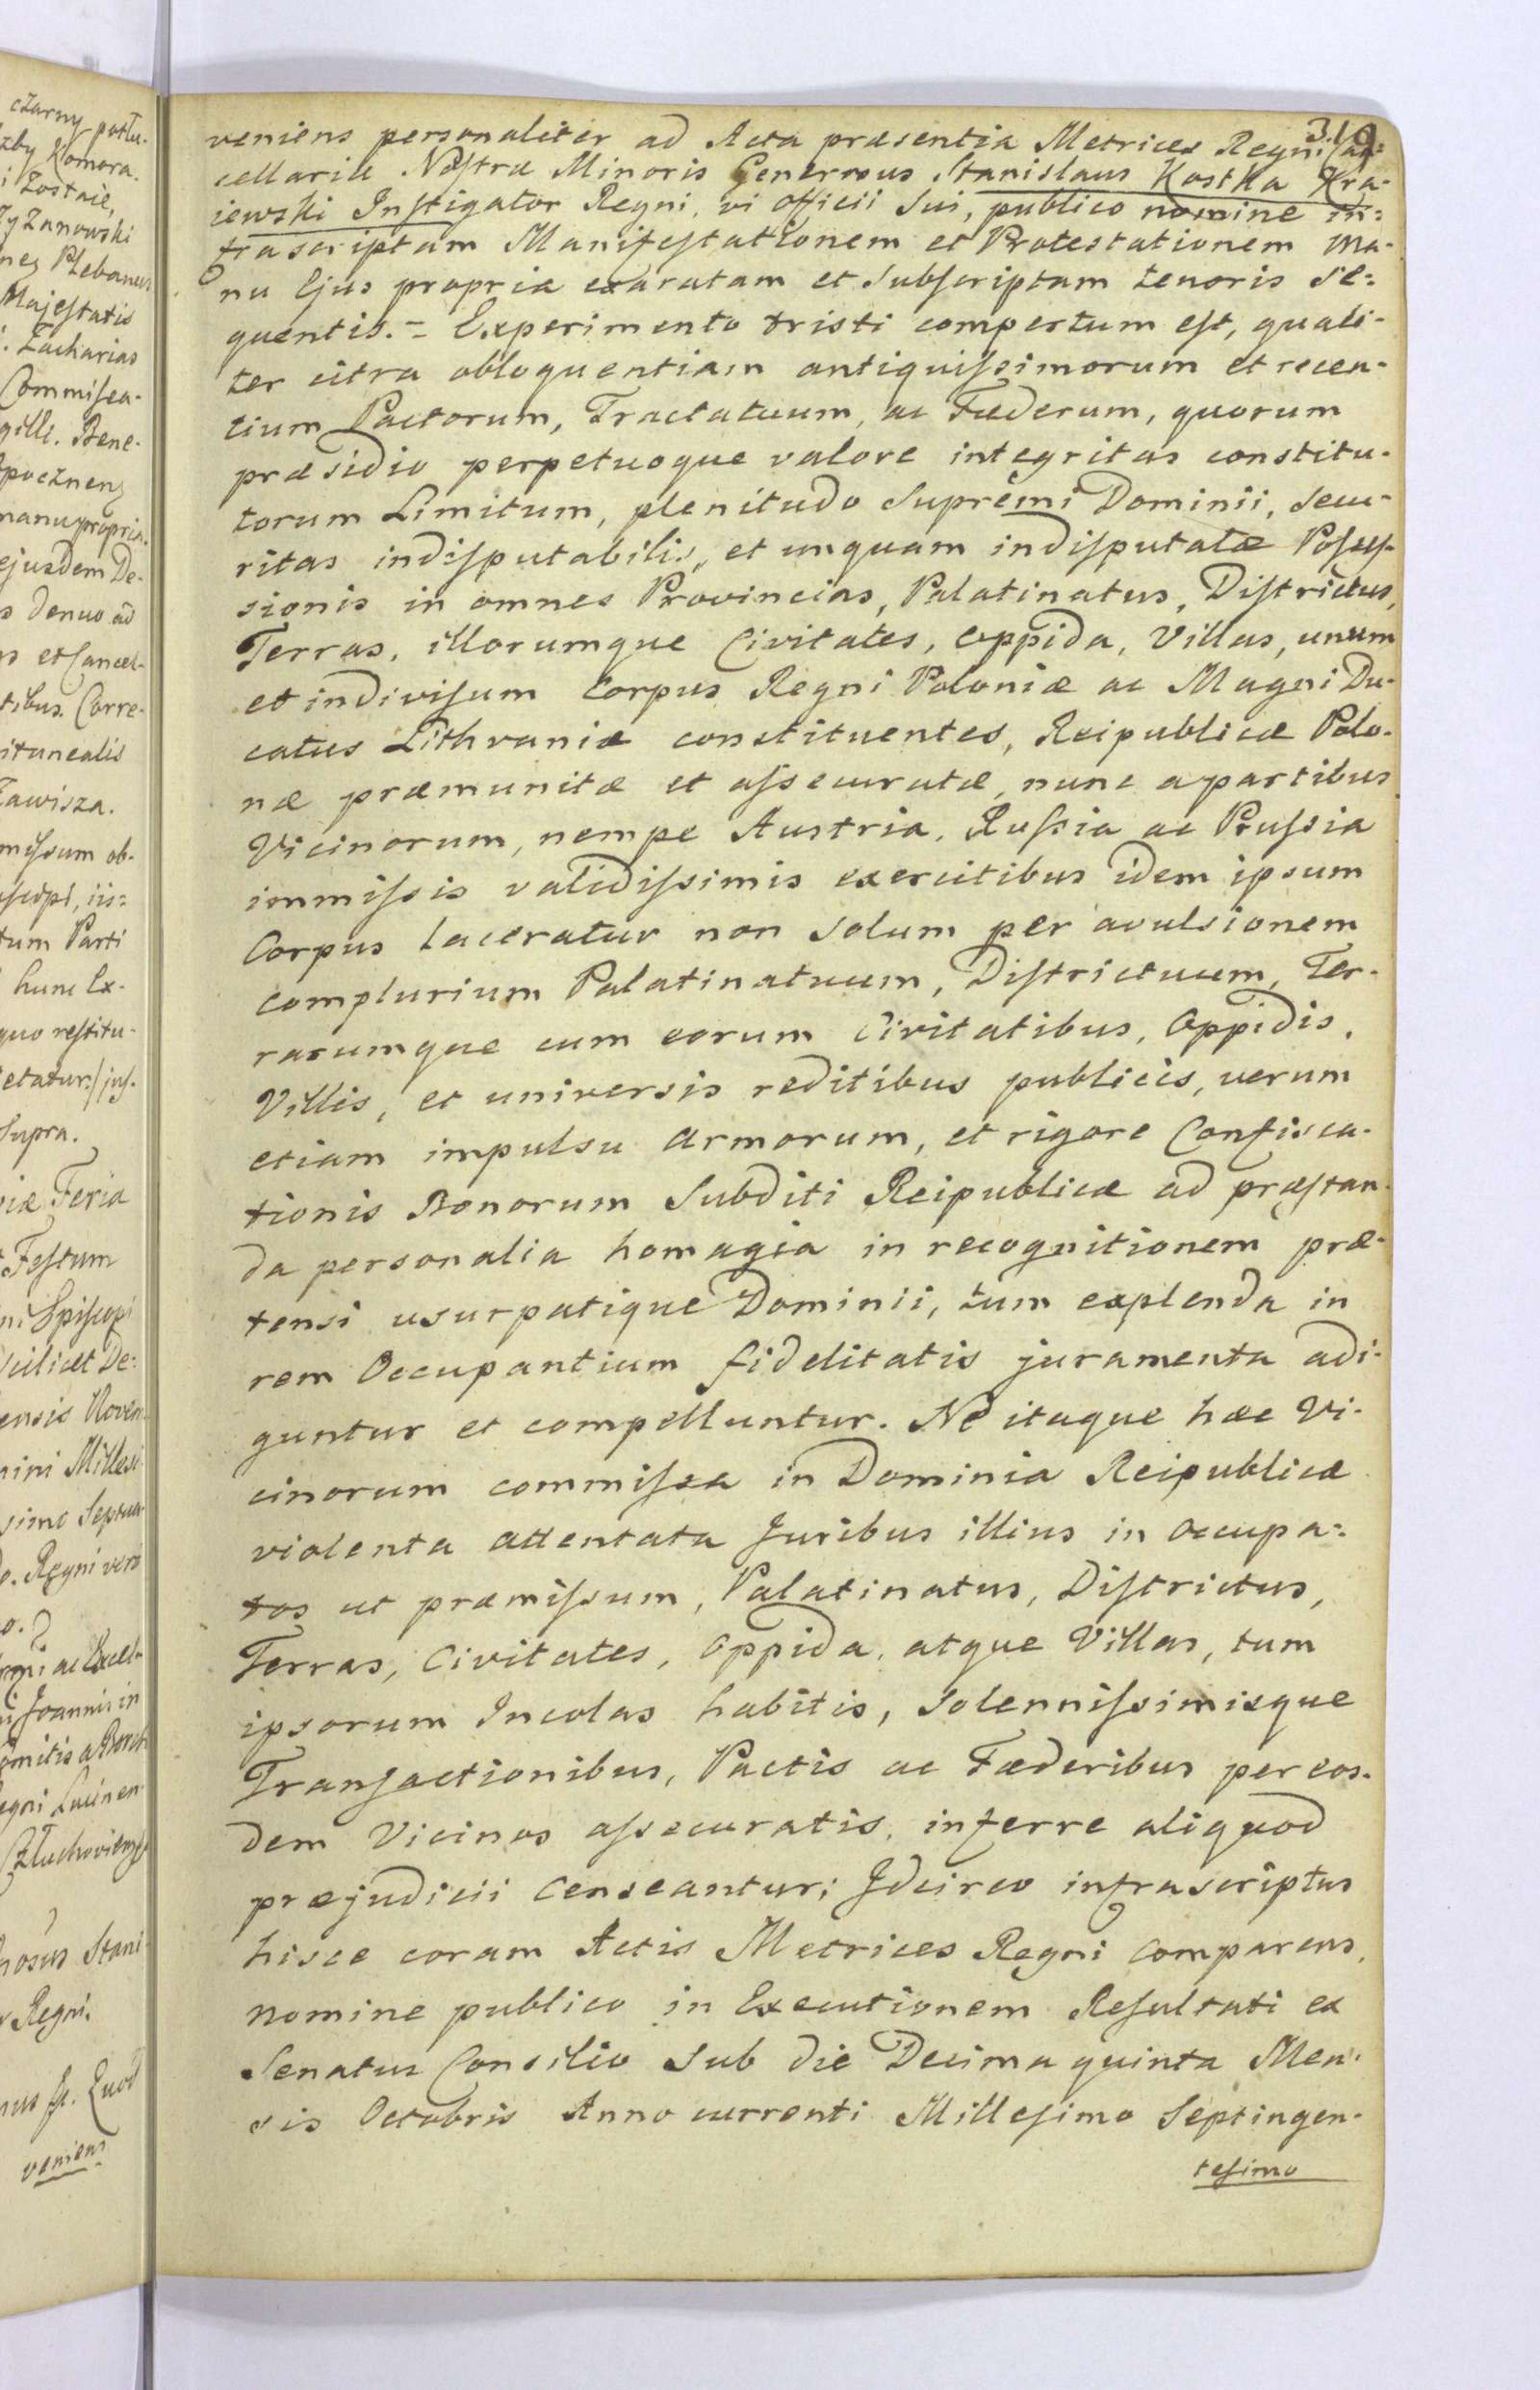 czarny potłu-
zby Komora.
i Zostaie,
zyzanowski
nes Plebanus
Majestatis
Zacharias
Commissa-
gill. Bene-
poczneng
manu propria.
ejusdem De-
s denuo ad
s et Cancel-
tibus. Corre-
itunealis
Zawisza.
missum ob-
tum Parti
hunc Ex-
quo restitu-
etatur:/ jus-
Supra.
iæ Feria
Festum
ni Episcopi
scilicet De-
ensis Novem
nini Millesi
simo Septua
o. Regni vero
o.
ac Excel-
i Joannis in
omitis a Borch
egni Lucinen-
Człuchoviense
nosus Stani-
r Regni.
Quod
veniens
310
veniens personaliter ad Acta præsentia Metrices Regni Can-
cellariæ Nostræ Minoris Generosus Stanislaus Kostka Kra-
jewski Instigator Regni, vi officii Sui, publico nomine in-
frascriptam Manifestationem et Protestationem ma-
nu Ejus propria exaratam et Subscriptam tenoris se-
quentis. = Experimento tristi compertum est, quali-
ter citra obloquentiam antiquissimorum et recen-
tium Pactorum, Tractatuum, ac Fæderum, quorum
præsidio perpetuoque valore integritas constitu-
torum Limitum, plenitudo Supremi Dominii, secu-
ritas indisputabilis, et unquam indisputatæ Posses-
sionis in omnes Provincias, Palatinatus, Districtus,
Terras, illorumque Civitates, oppida, Villas, unum
et indivisum Corpus Regni Poloniæ ac Magni Du-
catus Lithvaniæ constituentes, Reipublicæ Polo-
næ præmunitæ et assecuratæ, nunc a partibus
Vicinorum, nempe Austria, Russia ac Prussia
immissis validissimis exercitibus idem ipsum
Corpus laceratur non solum per avulsionem
complurium Palatinatuum, Districtuum, Ter-
rarumque cum eorum Civitatibus, Oppidis,
Villis, et universis reditibus publicis, verum
etiam impulsu Armorum, et rigore Confisca-
tionis Bonorum Subditi Reipublicæ ad præstan-
da personalia homagia in recognitionem præ-
tensi usurpatique Dominii, tum explenda in
rem Occupantium fidelitatis juramenta adi-
guntur et compelluntur. Ne itaque hæc Vi-
cinorum commissa in Dominia Reipublicæ
violenta attentata Juribus illius in occupa-
tos ut præmissum, Palatinatus, Districtus,
Terras, Civitates, oppida, atque Villas, tum
ipsorum Incolas habitis, Solennissimisque
Transactionibus, Pactis ac Fæderibus per eos-
dem Vicinos assecuratis, inferre aliquod
præjudicii censeantur; Idcirco infrascriptus
hisce coram Actis Metrices Regni comparens,
nomine publico in Executionem Resultati ex
Senatus Consilio Sub die Decima quinta Men-
sis Octobris Anno currenti Millesimo Septingen-
tesimo